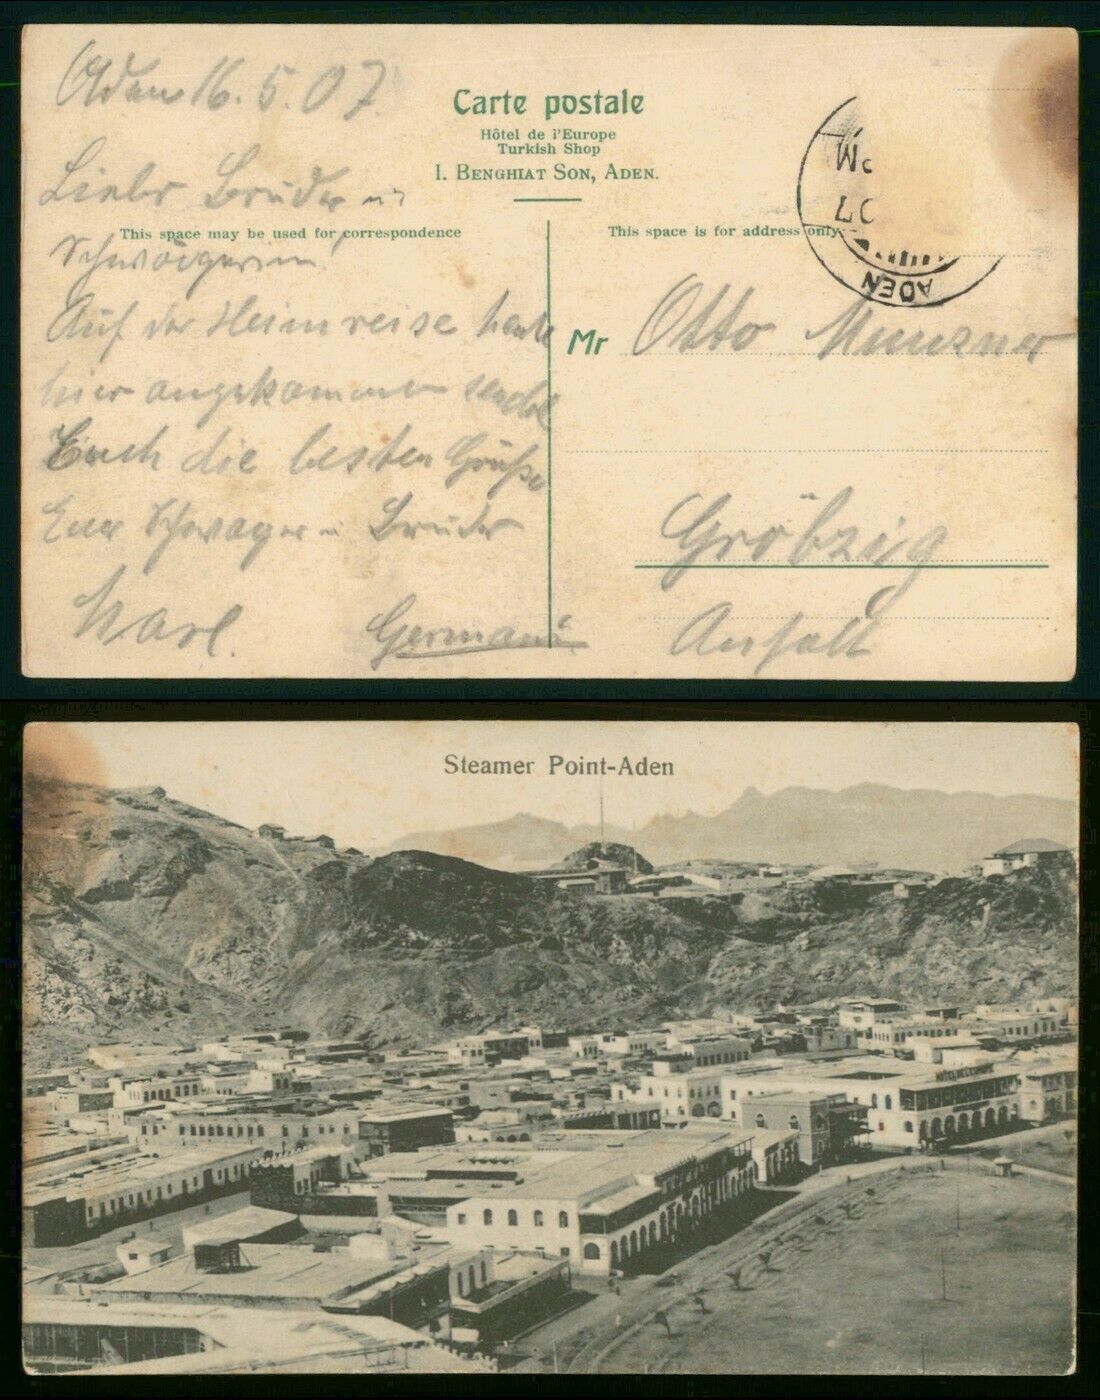 Aden 16.5.07
Carte postale
Hôtel de i'Europe
Turkish Shop
I. BENGHIAT SON, ADEN.
Lieber Bruder u
This space may be used for correspondence
Schwägerin!
Auf der Heimreise heute
hier angekommen sendet
Euch die besten Grüße
Euer Schwager u Bruder
Karl.
Germani
This space is for address only
PM
07
ADEN
Mr Otto Munzner
Gröbzig
Anhalt
Steamer Point-Aden